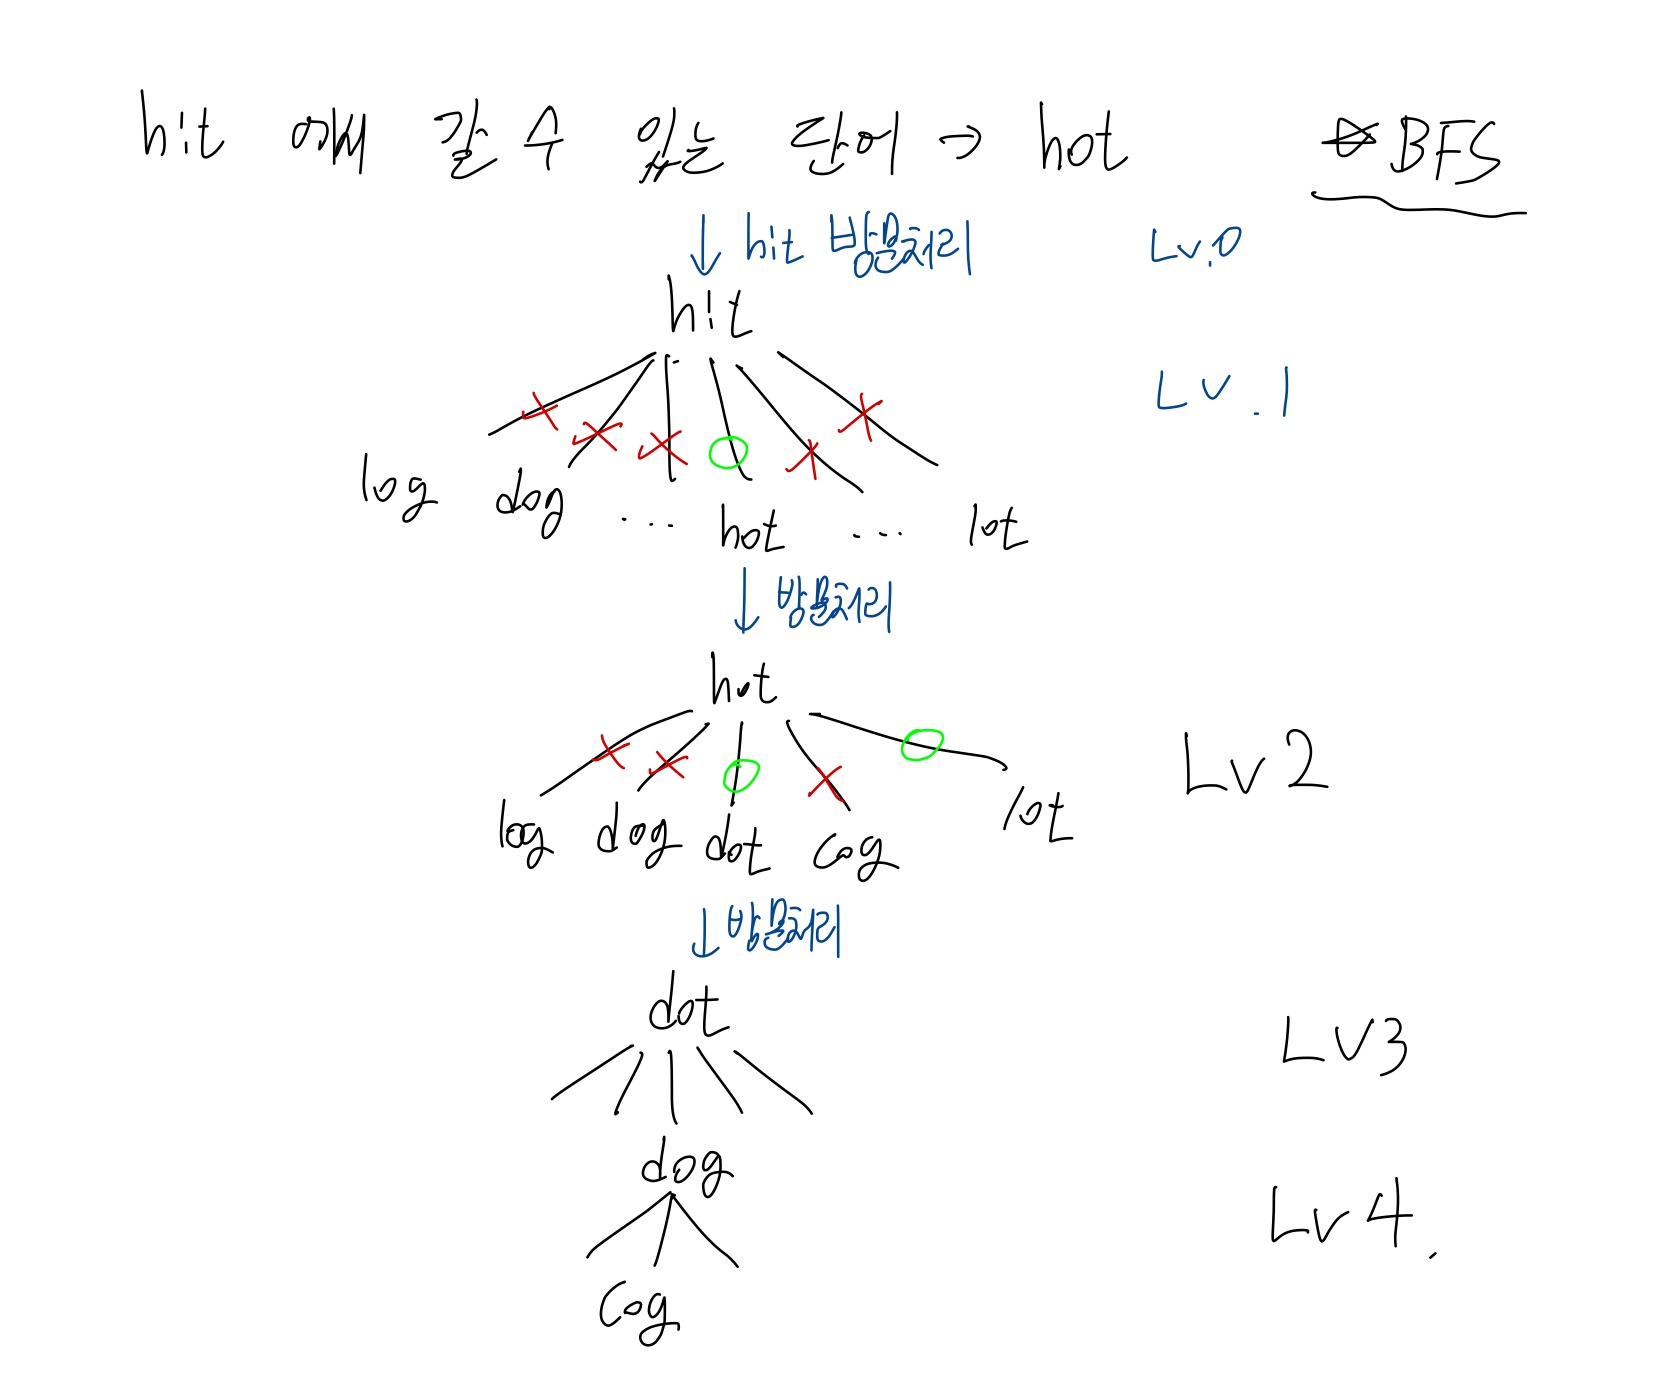 hit 에서 갈 수 있는 단어 → hot ☆ BFS
↓ hit 방문처리 Lv.0
hit
Lv.1
log dog ... hot ... lot
↓ 방문처리
hot
Lv2
log dog dot cog lot
↓ 방문처리
dot
Lv3
dog
Lv4.
cog